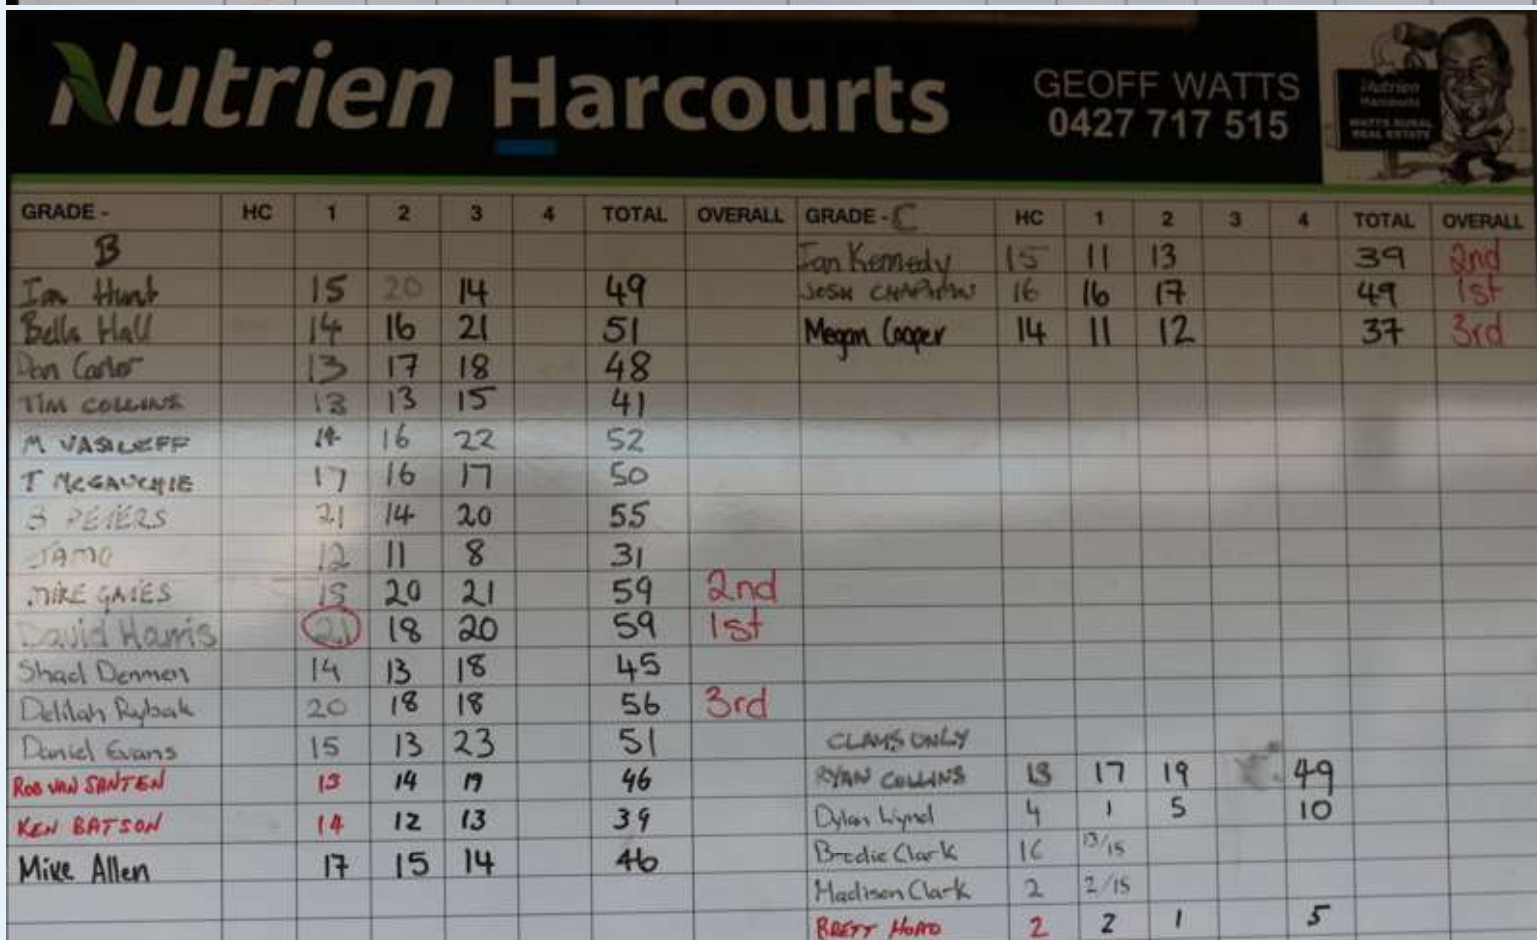 Nutrien Harcourts
GEOFF WATTS
0427 717 515
Nutrien
Harcourts
WATTS RURAL
REAL ESTATE
GRADE - HC 1 2 3 4 TOTAL OVERALL
B
Ian Hunt 15 20 14 49
Bella Hall 14 16 21 51
Don Carter 13 17 18 48
TIM COLLINS 13 13 15 41
M VASILEFF 14 16 22 52
T McGAUCHIE 17 16 17 50
PETERS 21 14 20 55
JAMO 12 11 8 31
MIKE GATES 18 20 21 59 2nd
David Harris 21 18 20 59 1st
Shael Denmen 14 13 18 45
Delilah Rybak 20 18 18 56 3rd
Daniel Evans 15 13 23 51
ROB VAN SANTEN 13 14 19 46
KEN BATSON 14 12 13 39
Mike Allen 17 15 14 46
GRADE - C HC 1 2 3 4 TOTAL OVERALL
Ian Kennedy 15 11 13 39 2nd
JOSH CHAPMAN 16 16 17 49 1st
Megan Cooper 14 11 12 37 3rd
CLAYS ONLY
RYAN COLLINS 13 17 19 49
Dylan 4 1 5 10
Brodie Clark 16 13/15
Madison Clark 2 2/15
BRETT HOAD 2 2 1 5